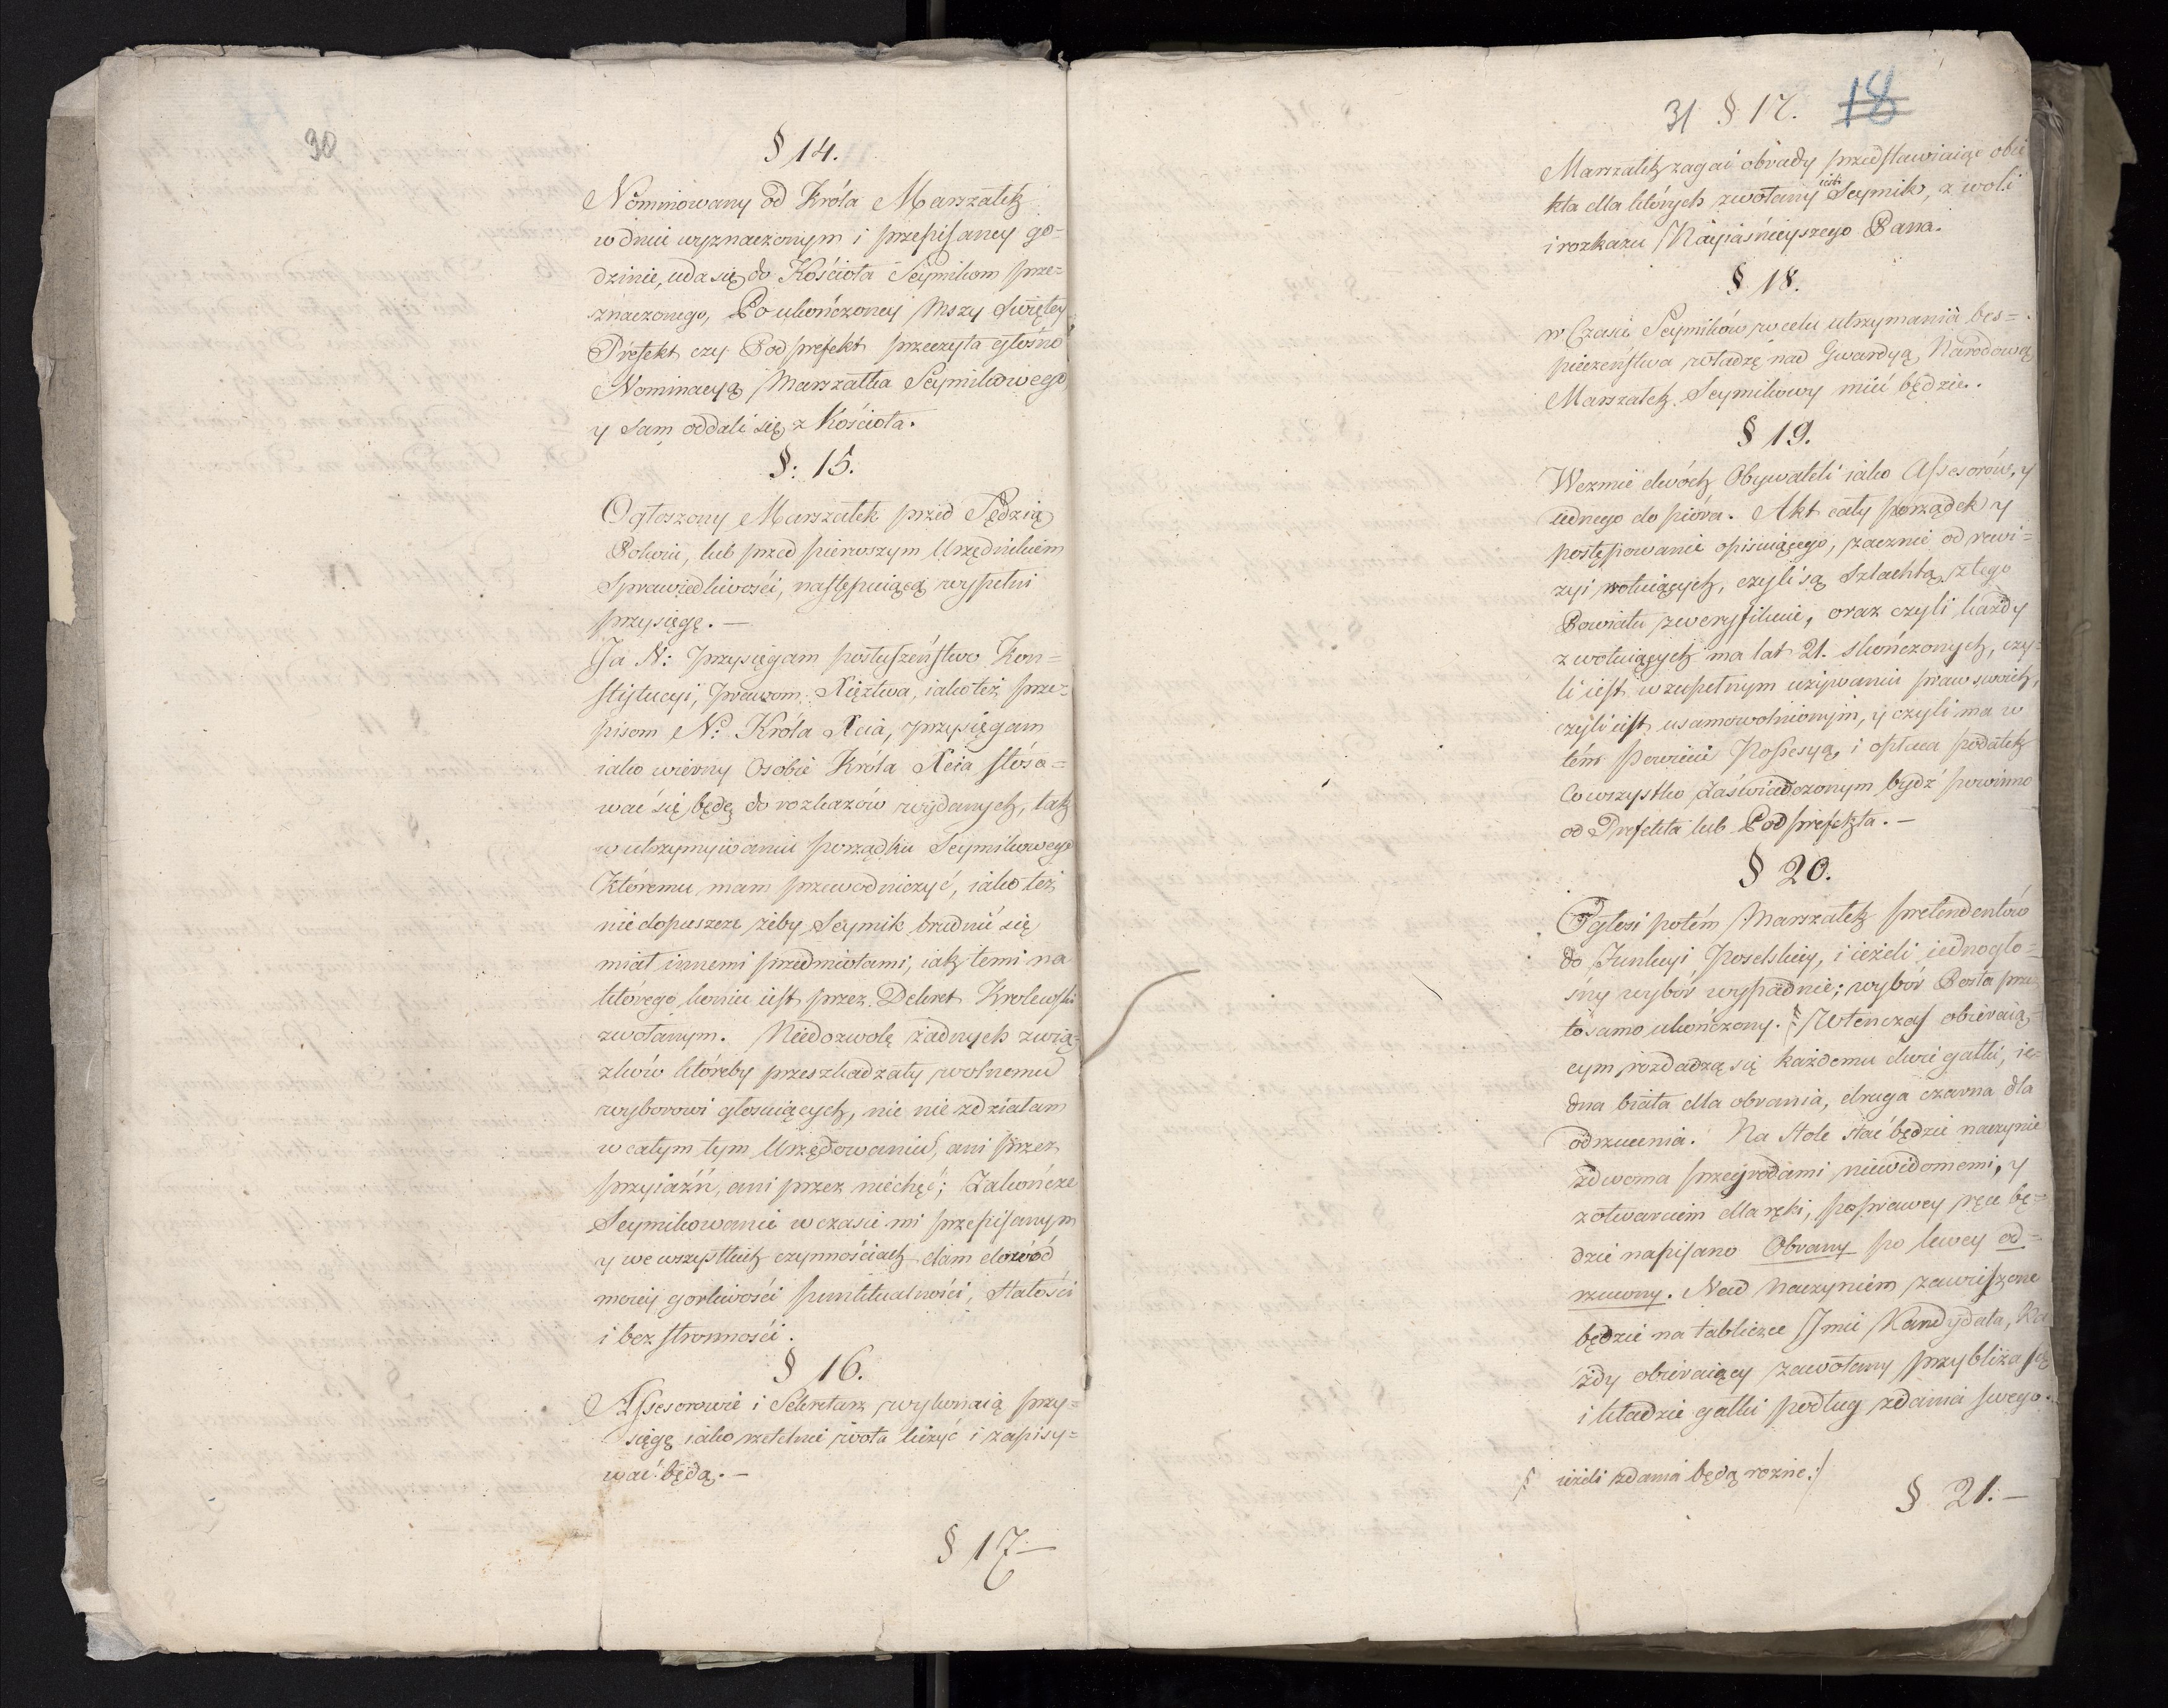 30
§ 14.
Nominowany od Króla Marszałek
w dniu wyznaczonym i przepisaney go=
dzinie, uda się do Kościoła Seymikom prze=
znaczonego, Po ukończoney Mszy Swiętey
Prefekt czy Podprefekt przeczyta głośno
Nominacyą Marszałka Seymikowego
y sam oddali się z Kościoła.
§: 15.
Ogłoszony Marszałek przed Sędzią
Pokoiu, lub przed pierwszym Urzędnikiem
Sprawiedliwości, następuiącą wypełni
przysięgę. —
Ja N: przysięgam posłuszeństwo Kon=
stytucyi, prawom Xięztwa, iako też prze=
pisom N. Króla Xcia, przysięgam
iako wierny Osobie Króla Xcia stóso=
wać się będę do rozkazów wydanych, tak
w utrzymywaniu porządku Seymikowego
któremu mam przewodniczyć, iako też
nie dopuszczę żeby Seymik trudnić się
miał innemi przedmiotami, iak temi na
którego koniec iest przez Dekret Krolewski
zwołanym. Niedozwolę żadnych zwią=
zków któreby przeszkadzały wolnemu
wyborowi głosuiących, nic nie zdziałam
w całym tym Urzędowaniu, ani przez
przyiaźń, ani przez niechęć; Zakończę
Seymikowanie w czasie mi przepisanym
y we wszystkich czynnościach dam dowód
moiey gorliwości punktualności, stałości
i bezstronności.
§ 16.
Assesorowie i Sekretarz wykonaią przy=
sięgę iako rzetelnie wota liczyć i zapisy=
wać będą. —
§ 17 —
31 § 17. 18
Marszałek zagai obrady przedstawiaiąc obie
kta dla których zwołany iest Seymik, z woli
i rozkazu Nayiaśnieyszego Pana.
§ 18.
w Czasie Seymików, w celu utrzymania bes=
pieczeństwa władzę nad Gwardyą Narodową
Marszałek Seymikowy mieć będzie.
§ 19.
Weźmie dwóch Obywateli iako Assesorów, y
iednego do pióra. Akt cały porządek y
postępowanie opisuiącego, zacznie od rewi=
zyi wotuiących, czyli są Szlachtą z tego
Powiatu zweryfikuie, oraz czyli każdy
z wotuiących ma lat 21. skończonych, czy=
li iest w zupełnym używaniu praw swoich,
czyli iest usamowolnionym, y czyli ma w
tém Powiecie Possesyą, i opłaca podatek
Co wszystko zaświadczonym bydź powinno
od Prefekta lub Podprefekta. —
§ 20.
Ogłosi potém Marszałek pretendentów
do Funkcyi Poselskiey, i ieżeli iednogło=
śny wybór wypadnie; wybór Posła przez
to samo ukończony. Wtenczas obieraią=
cym rozdadzą się każdemu dwie gałki, ie=
dna biała dla obrania, druga czarna dla
odrzucenia. Na Stole stać będzie naczynie
z dwoma przegrodami niewidomemi, y
z otwarciem dla ręki, po prawey ręce bę=
dzie napisano Obrany po lewey od=
rzucony. Nad Naczyniem zawieszone
będzie na tabliczce Imie Kandydata, Ka
żdy obieraiący zawołany przybliża się
i kładzie gałki podług zdania swego.
ieżeli zdania będą rozne:/
§ 21. —